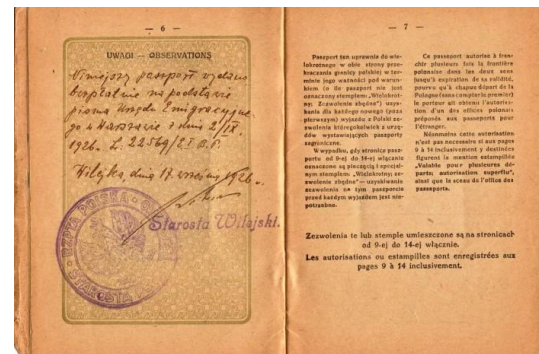 — 6 —
UWAGI — OBSERVATIONS
Niniejszy paszport wydano
bezpłatnie na podstawie
pisma Urzędu Emigracyjne-
go w Warszawie z dnia 2/IX.
1926. L. 22569/
Wilejka, dnia 17 września 1926.
Starosta Wilejski.
— 7 —
Paszport ten uprawnia do wie-
lokrotnego w obie strony prze-
kraczania granicy polskiej w ter-
minie jego ważności pod warun-
kiem (o ile paszport nie jest
oznaczony stemplem: „Wielokrot-
ny; Zezwolenie zbędne") uzys-
kania dla każdego nowego (poza
pierwszym) wyjazdu z Polski ze-
zwolenia któregokolwiek z urzę-
dów wystawiających paszporty
zagraniczne.
W wypadku, gdy stronice pasz-
portu od 9-ej do 14-ej włącznie
oznaczone są pieczęcią i specjal-
nym stemplem: „Wielokrotny; ze-
zwolenie zbędne" — uzyskiwanie
zezwolenia na tym paszporcie
przed każdym wyjazdem jest nie-
potrzebne.
Ce passeport autorise à fran-
chir plusieurs fois la frontière
polonaise dans les deux sens
jusqu'à expiration de sa validité,
pourvu qu'à chaque départ de la
Pologne (sans compter le premier)
le porteur ait obtenu l'autorisa-
tion d'un des offices polonais
préposés aux passeports pour
l'étranger.
Néanmoins cette autorisation
n'est pas nécessaire si aux pages
9 à 14 inclusivement y destinées
figurent la mention estampillée
„Valable pour plusieures dé-
parts; autorisation superflu",
ainsi que le sceau de l'office des
passeports.
Zezwolenia te lub stemple umieszczone są na stronicach
od 9-ej do 14-ej włącznie.
Les autorisations ou estampilles sont enregistrées aux
pages 9 à 14 inclusivement.